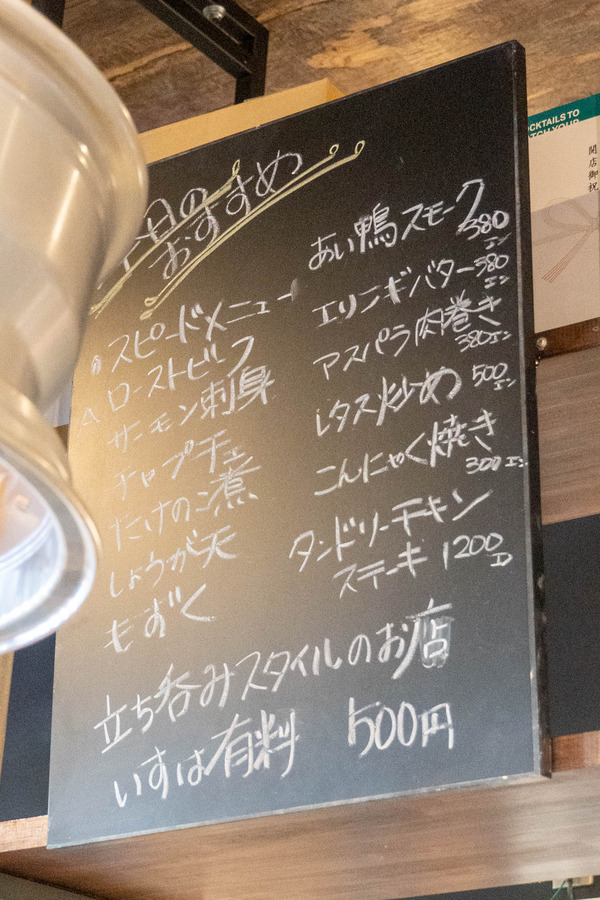 本日の
おすすめ
スピードメニュー
ローストビーフ
サーモン刺身
チャプチェ
たけのこ煮
しょうが天
もずく
あい鴨スモーク 380エン
エリンギバター 380エン
アスパラ肉巻き 380エン
レタス炒め 500エン
こんにゃく焼き 300エン
タンドリーチキン
ステーキ 1200
立ち呑みスタイルのお店
いすは有料 500円
OCKTAILS TO
TCH YOUR
開店御祝